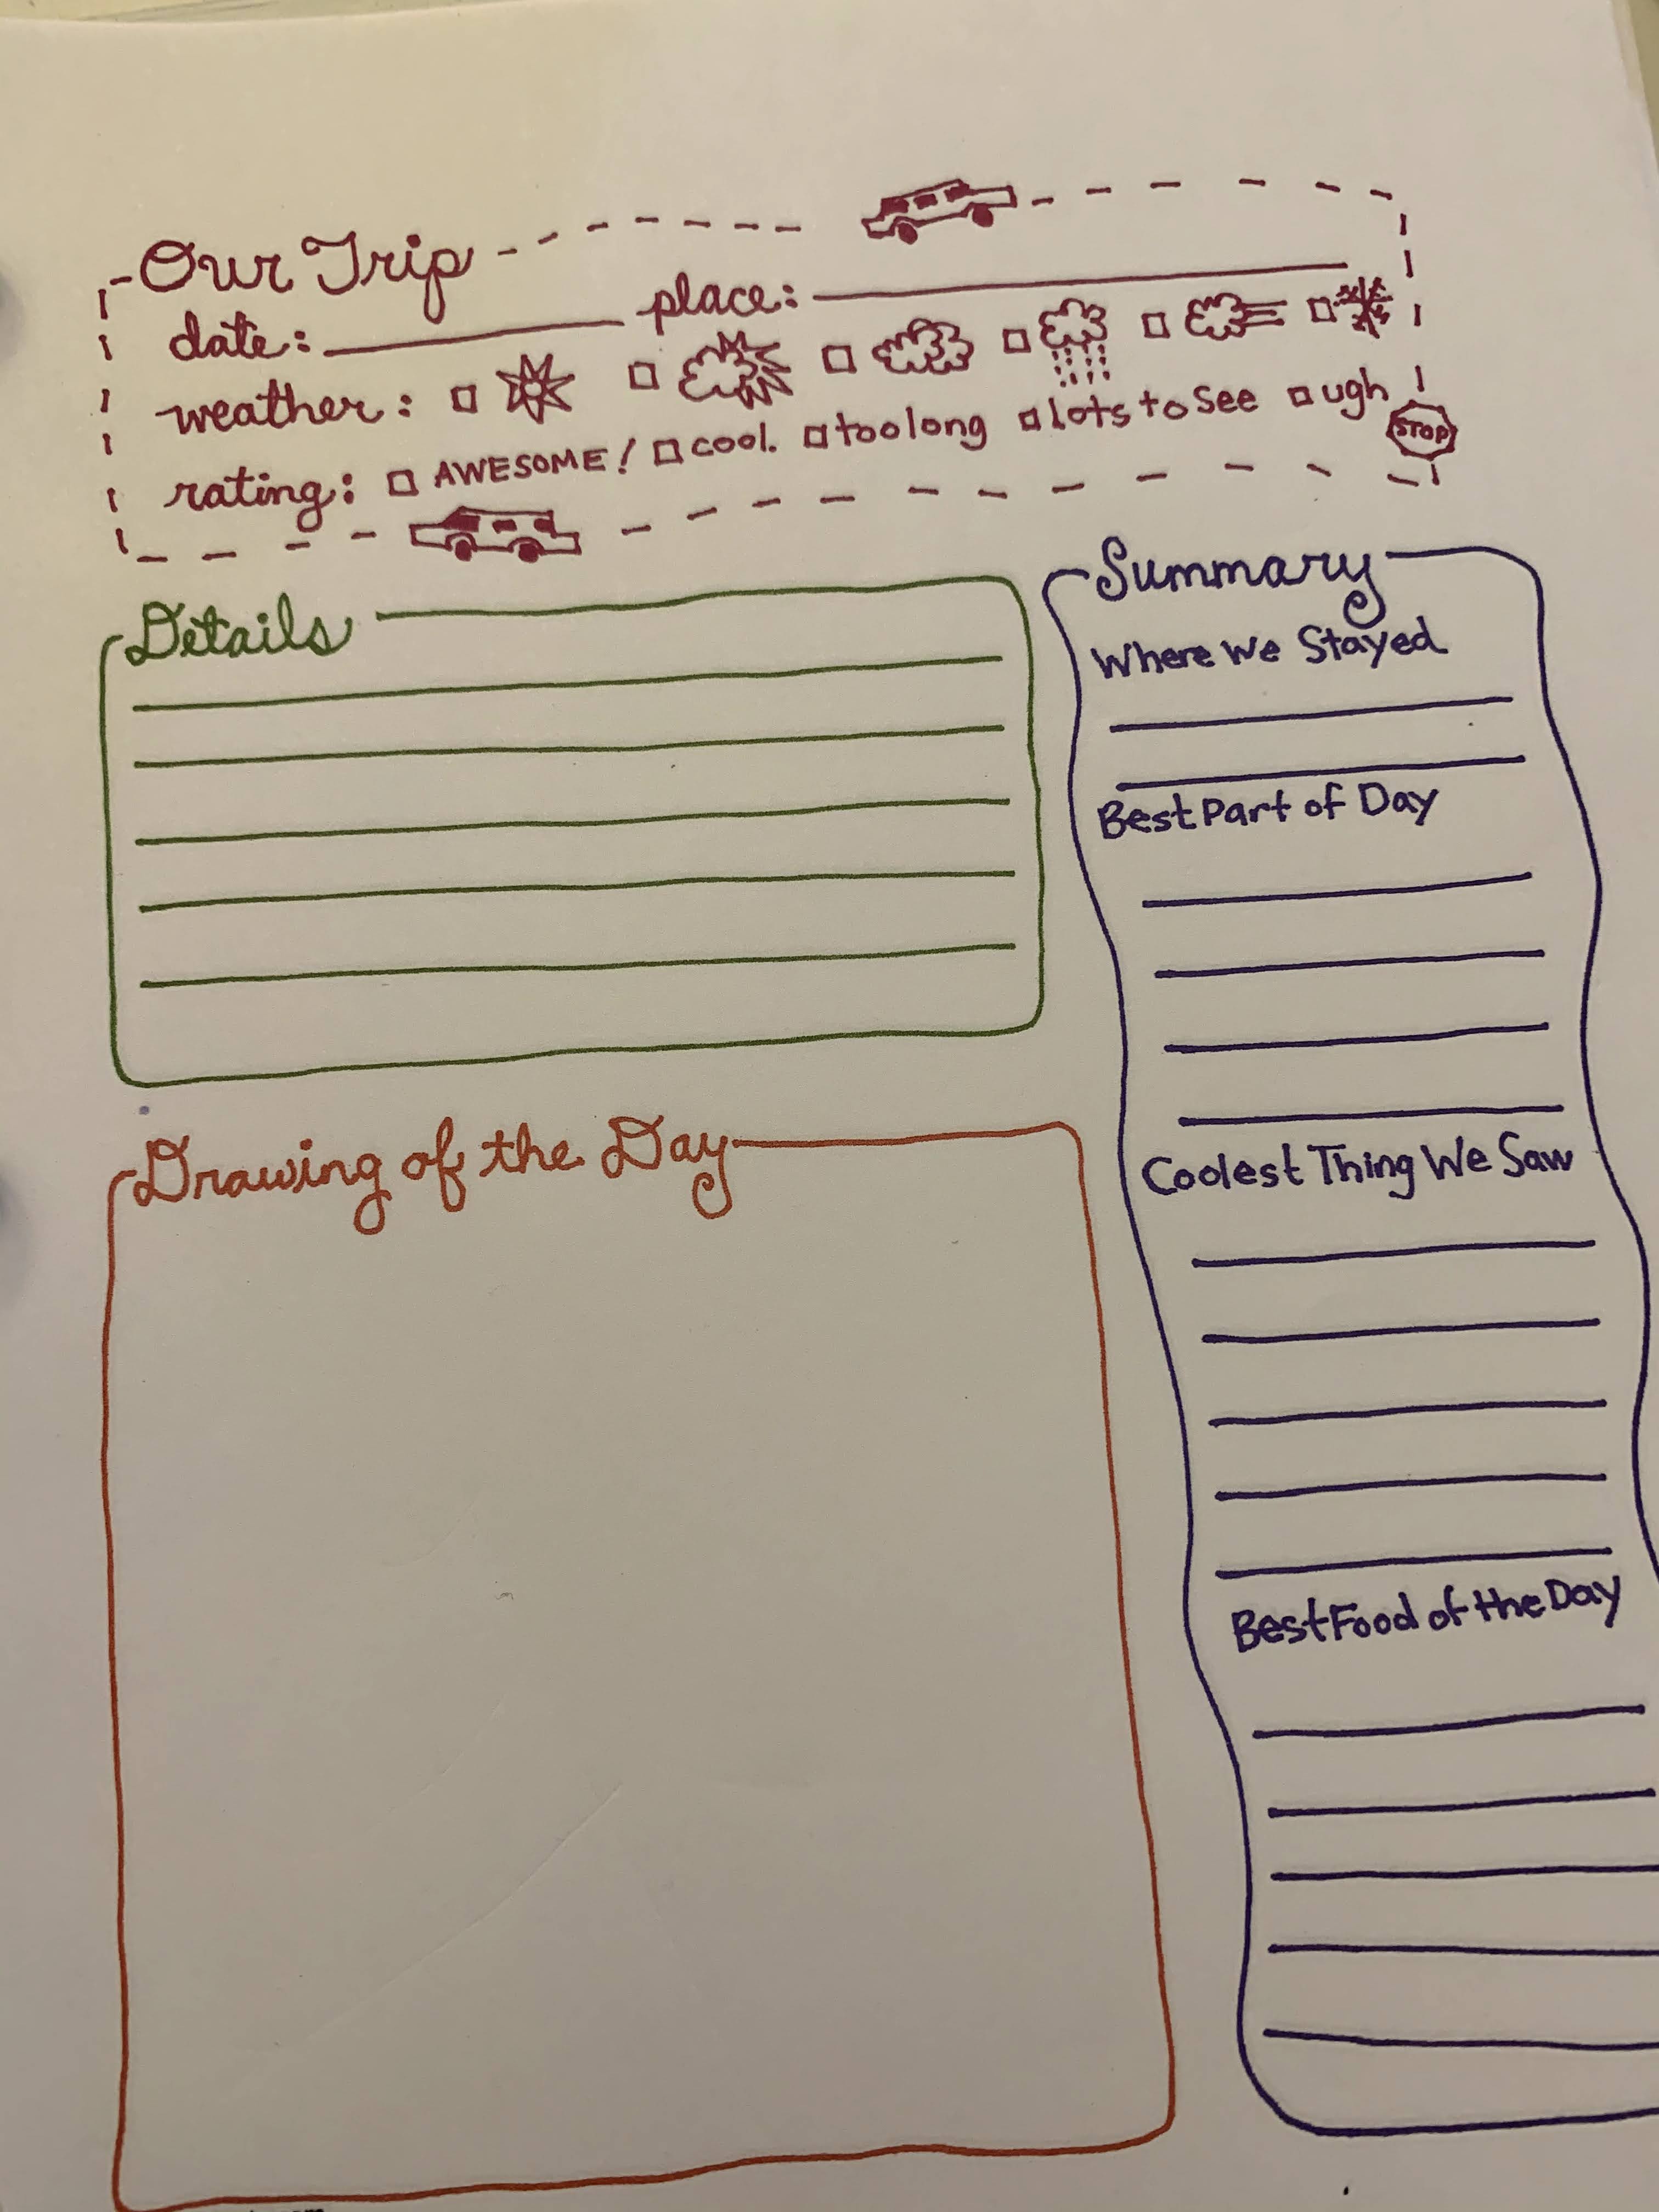 Our Trip
date: place:
weather:
rating: AWESOME! cool. too long lots to see ugh
STOP
Details
Summary
Where We Stayed
Best Part of Day
Coolest Thing We Saw
Best Food of the Day
Drawing of the Day